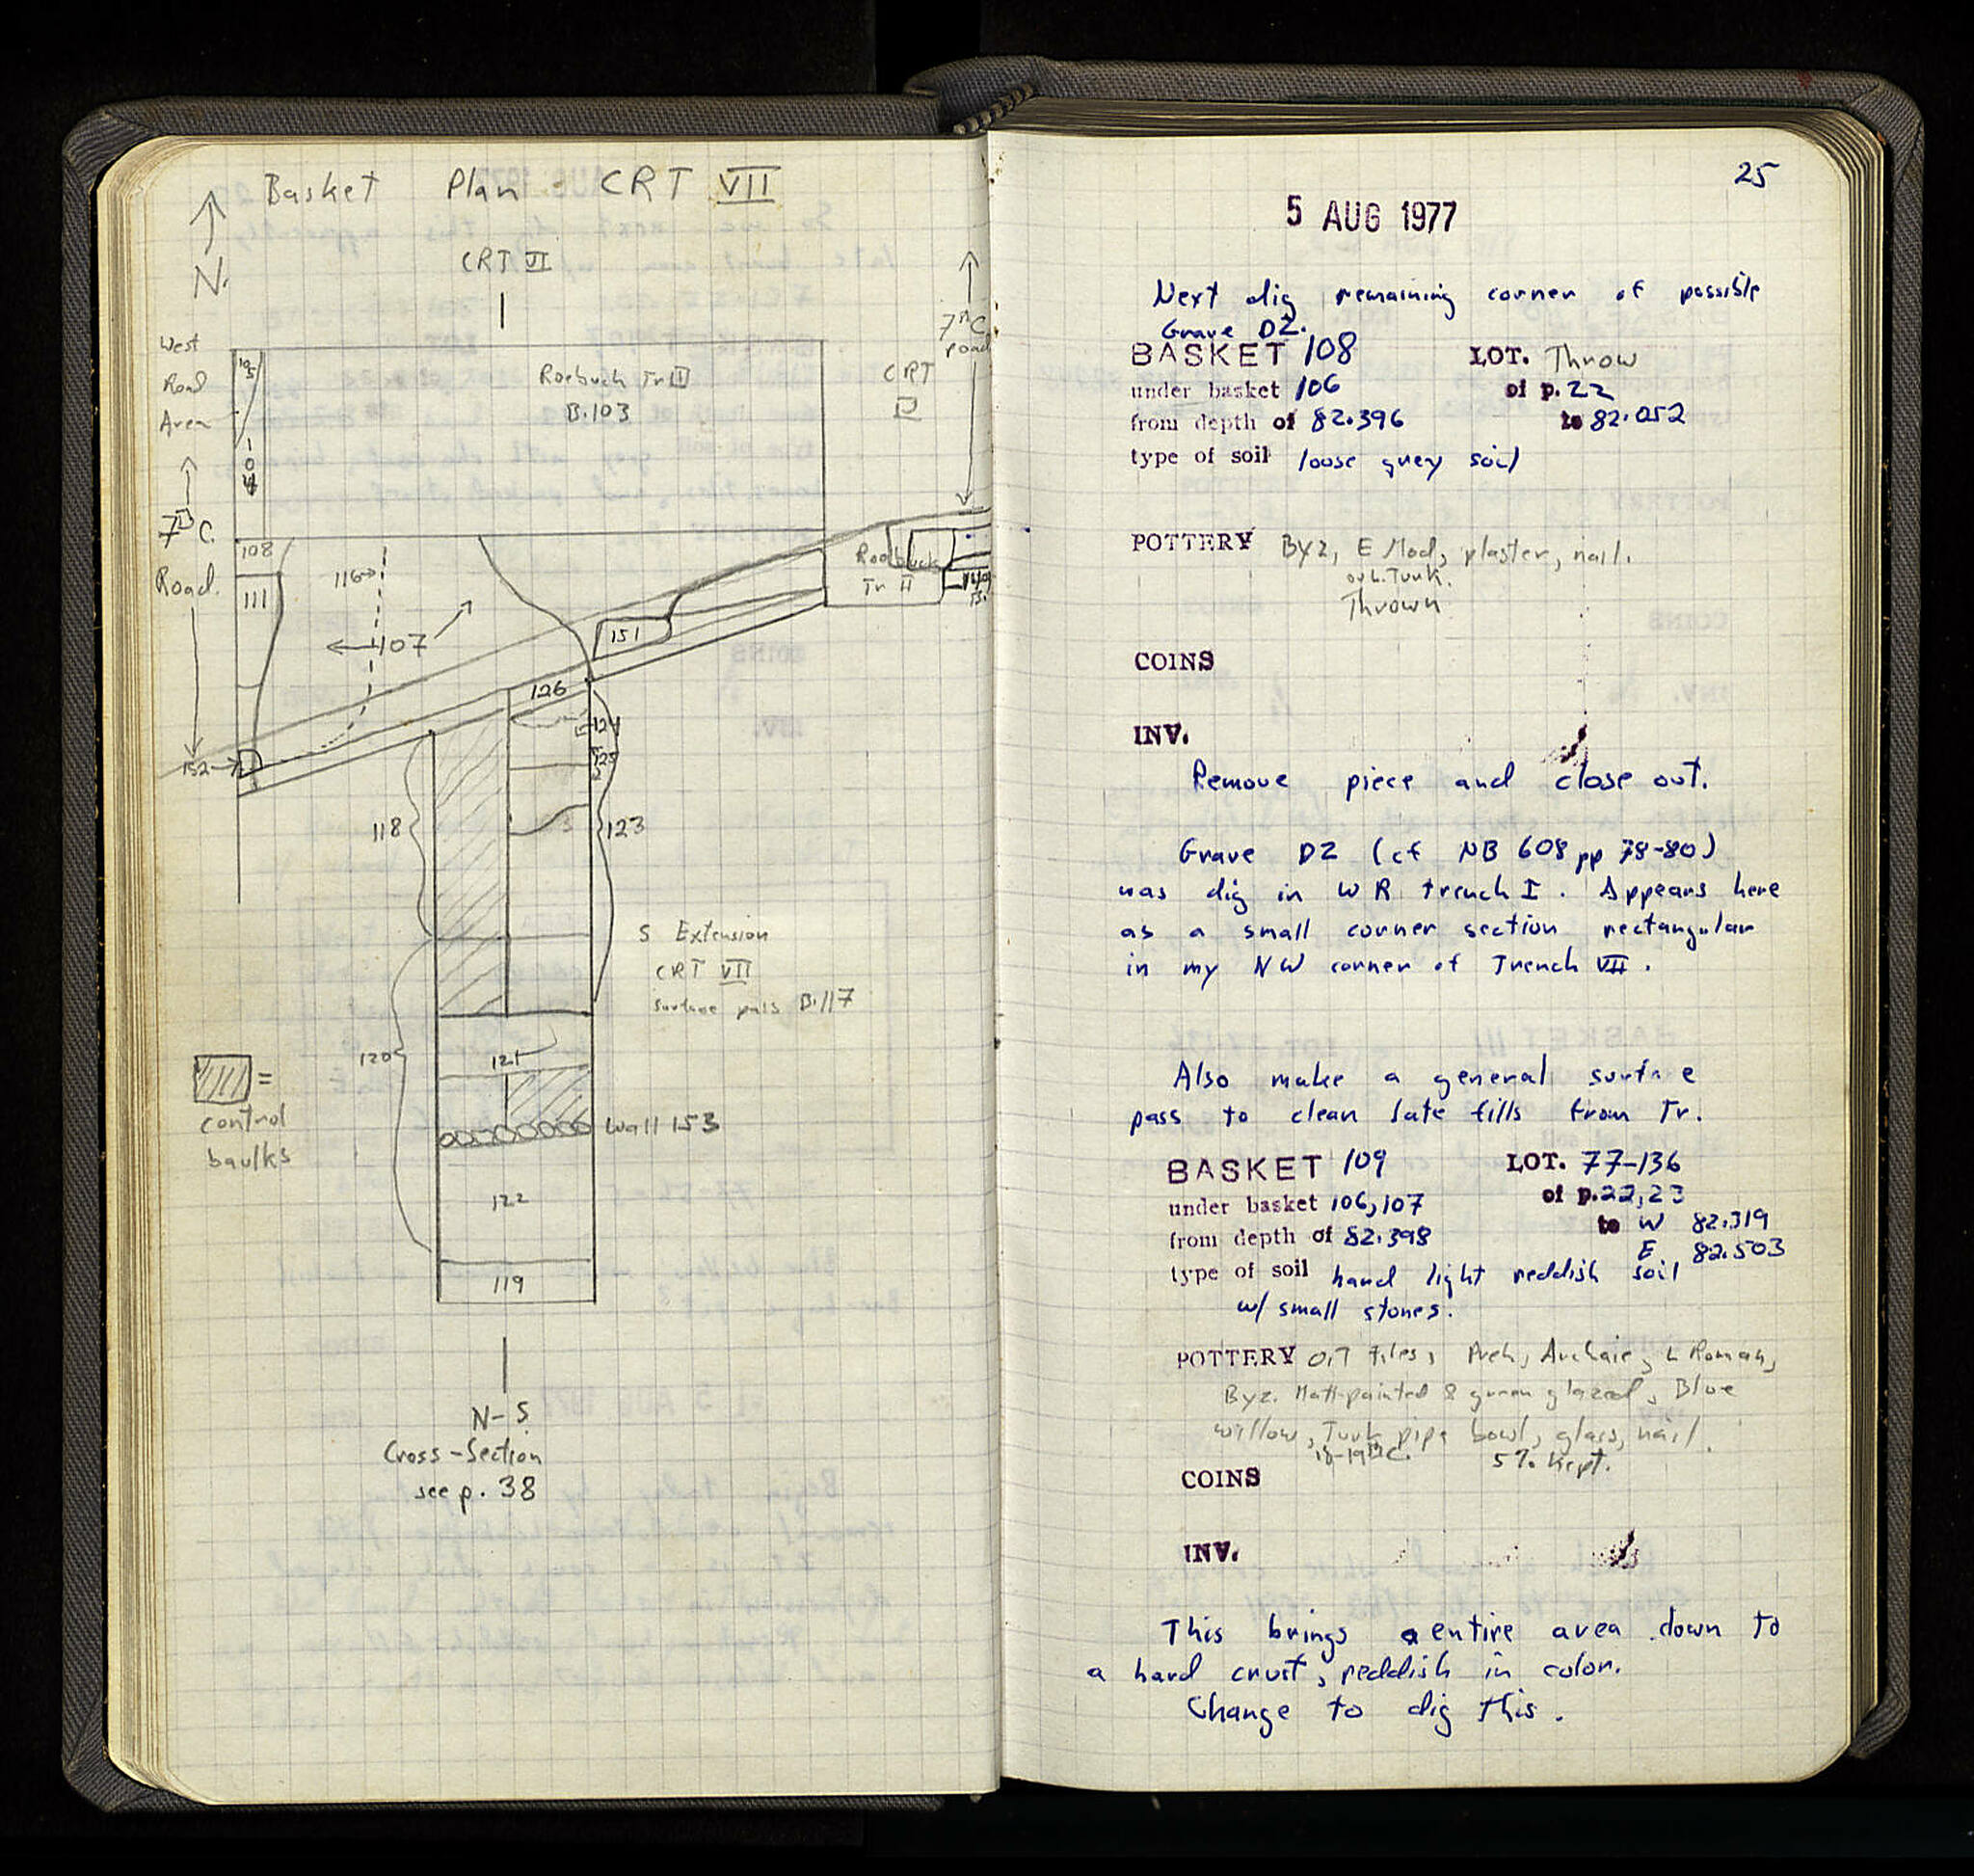 Basket Plan CRT VII
N.
CRT VI
7th C.
road
West
Road
Area
105
104
Roebuck Tr III
B.103
CRT
7th C.
Road.
108
111
116
107
Roebuck
Tr II
151
126
124
125
152
118
123
S Extension
CRT VII
surface pass B.117
120
121
=
control
baulks
Wall 153
122
119
N-S
Cross-Section
see p. 38
25
5 AUG 1977
Next dig remaining corner of possible
Grave DZ.
BASKET 108 LOT. Throw
under basket 106 of p. 22
from depth of 82.396 to 82.052
type of soil loose grey soil
POTTERY Byz, E Mod, plaster, nail.
or L. Turk.
Thrown
COINS
INV.
Remove piece and close out.
Grave DZ (cf NB 608 pp 78-80)
was dig in WR trench I. Appears here
as a small corner section rectangular
in my NW corner of Trench VII.
Also make a general surface
pass to clean late fills from Tr.
BASKET 109 LOT. 77-136
under basket 106,107 of p. 22,23
from depth of 82.398 to W 82.319
E 82.503
type of soil hard light reddish soil
w/ small stones.
POTTERY O.T tiles, Preh, Archaic, L Roman,
Byz. Matt-painted & green glazed, Blue
willow, Turk pipe bowl, glass, nail.
18-19th C. 5% kept.
COINS
INV.
This brings entire area down to
a hard crust, reddish in color.
Change to dig this.